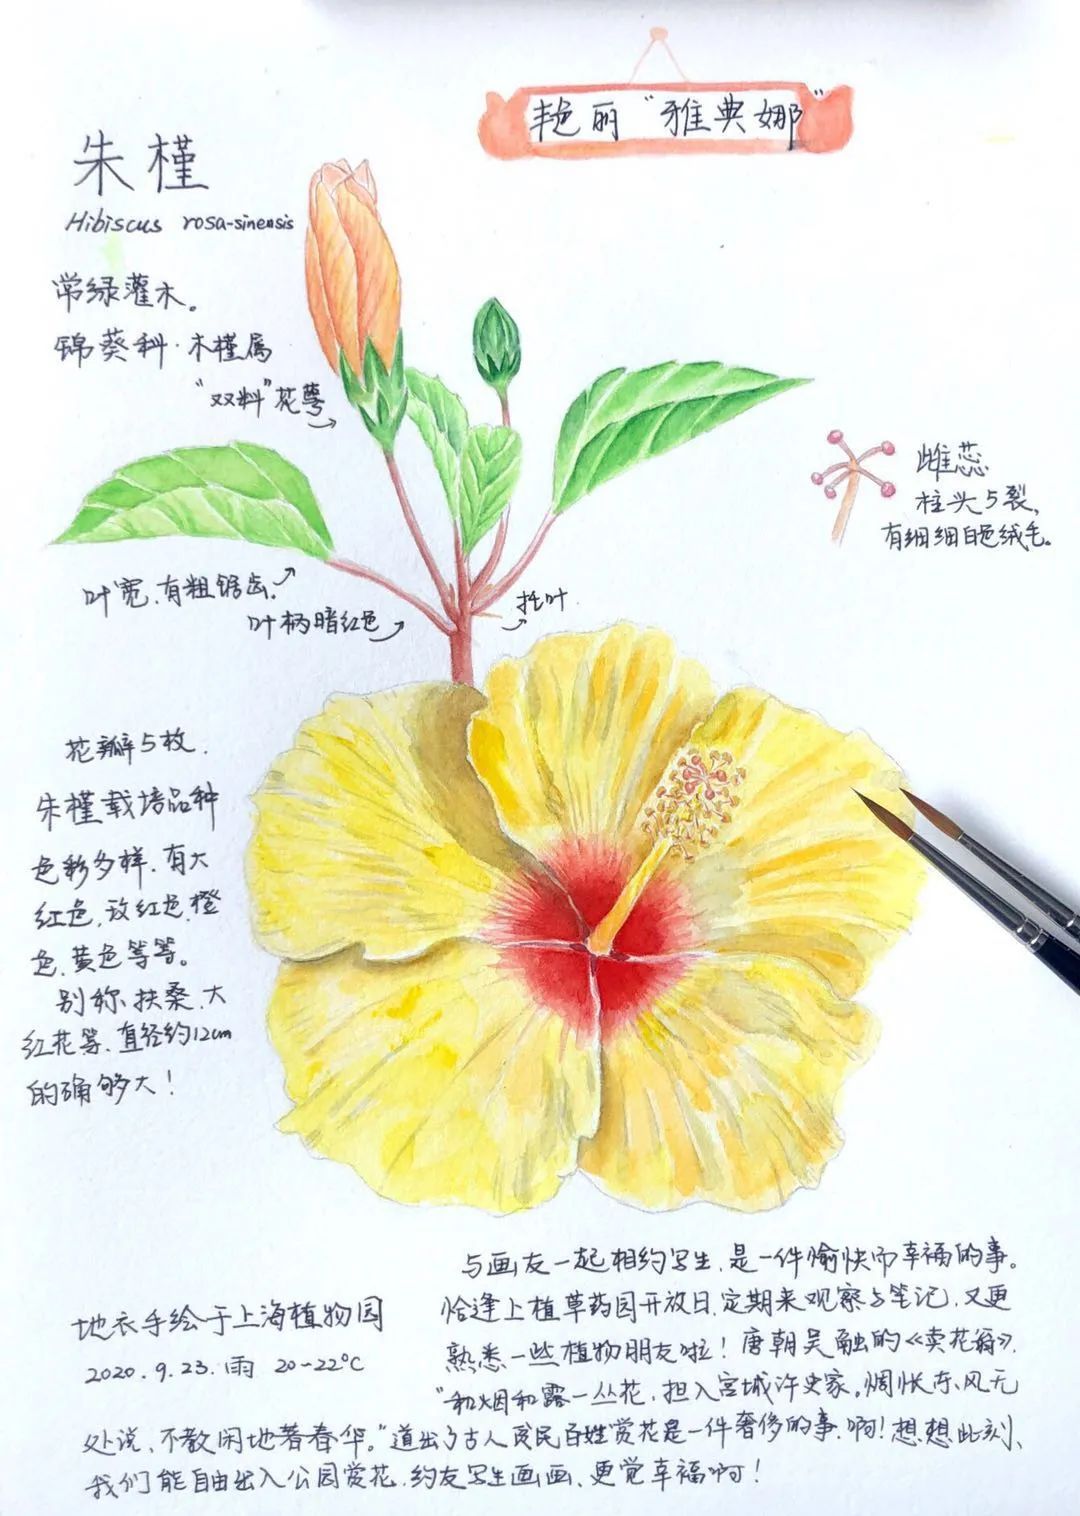 艳丽“雅典娜”
朱槿
Hibiscus rosa-sinensis
常绿灌木。
锦葵科·木槿属
“双料”花萼
雌蕊
柱头5裂,
有细细白色绒毛。
叶宽.有粗锯齿.
叶柄暗红色
托叶
花瓣5枚.
朱槿栽培品种
色彩多样.有大
红色,玫红色,橙
色,黄色等等。
别称 扶桑、大
红花等.直径约12cm
的确够大!
与画友一起相约写生,是一件愉快而幸福的事。
恰逢上植草药园开放日,定期来观察与笔记,又更
熟悉一些植物朋友啦!唐朝吴融的《卖花翁》,
“和烟和露一丛花,担入宫城许史家。惆怅东风无
处说,不教闲地著春华。”道出了古人贫民百姓赏花是一件奢侈的事.啊!想想此刻、
我们能自由出入公园赏花.约友写生画画、更觉幸福啊!
地衣手绘于上海植物园
2020.9.23.雨 20~22℃